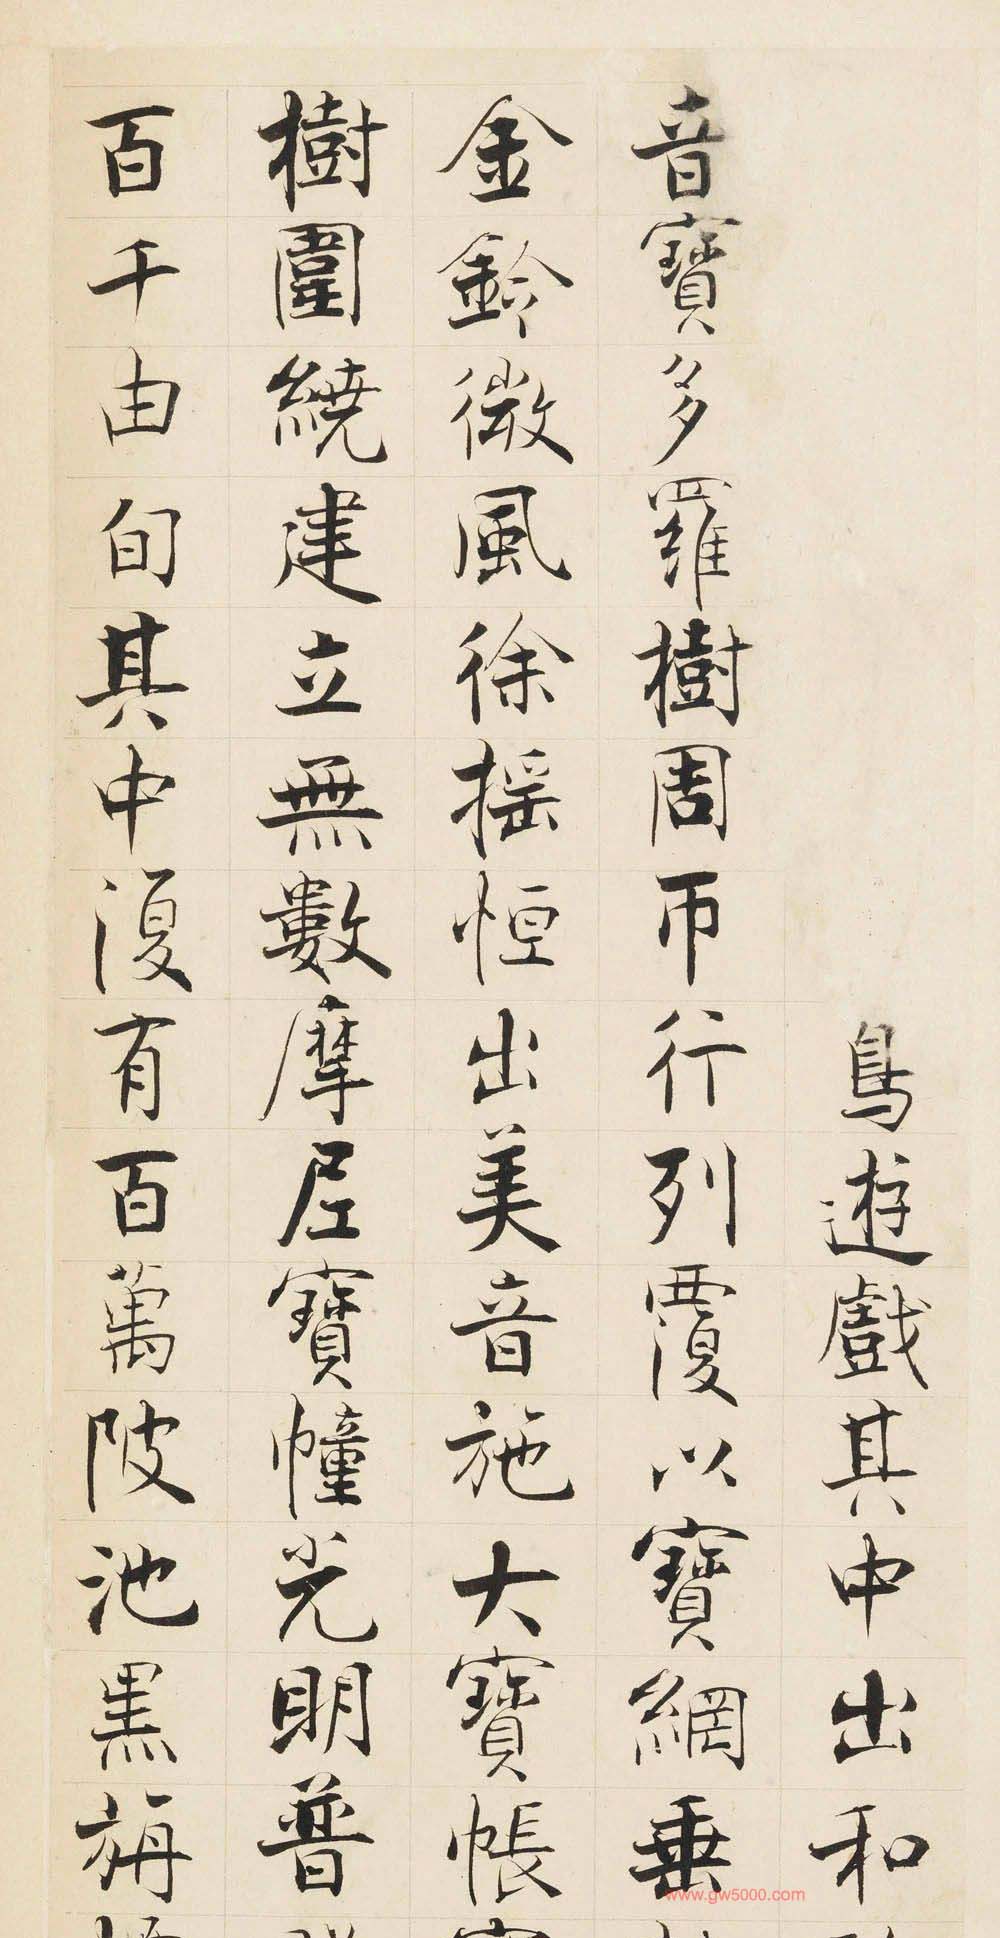 鳥遊戲其中出和
音寶多羅樹周帀行列覆以寶網垂
金鈴微風徐摇恒出美音施大寶帳
樹圍繞建立無數摩尼寶幢光明普
百千由旬其中復有百萬陂池黑栴
www.gw5000.com